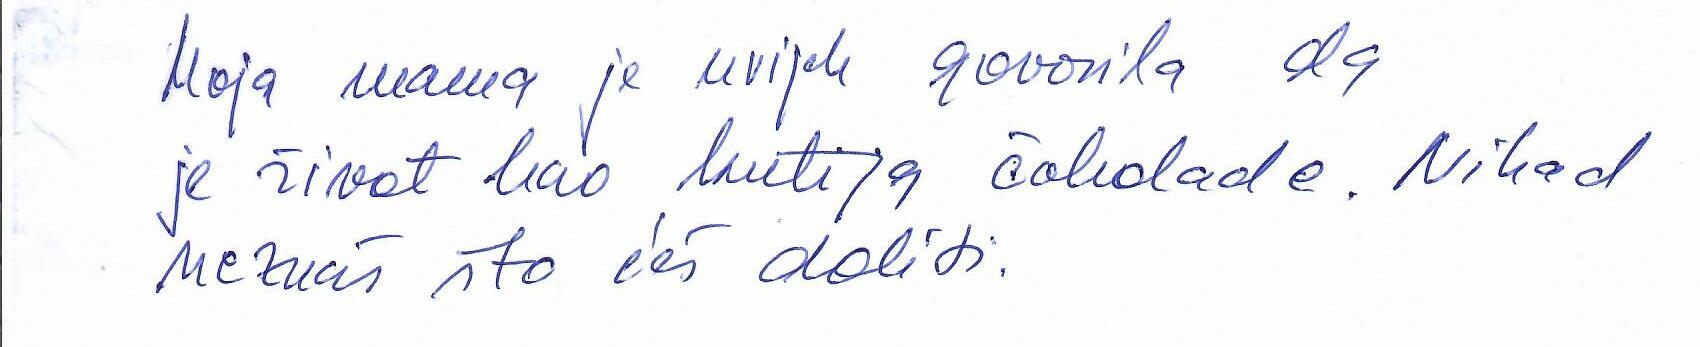 Moja mama je uvijek govorila da
je život kao kutija čokolade. Nikad
neznaš što ćeš dobiti.